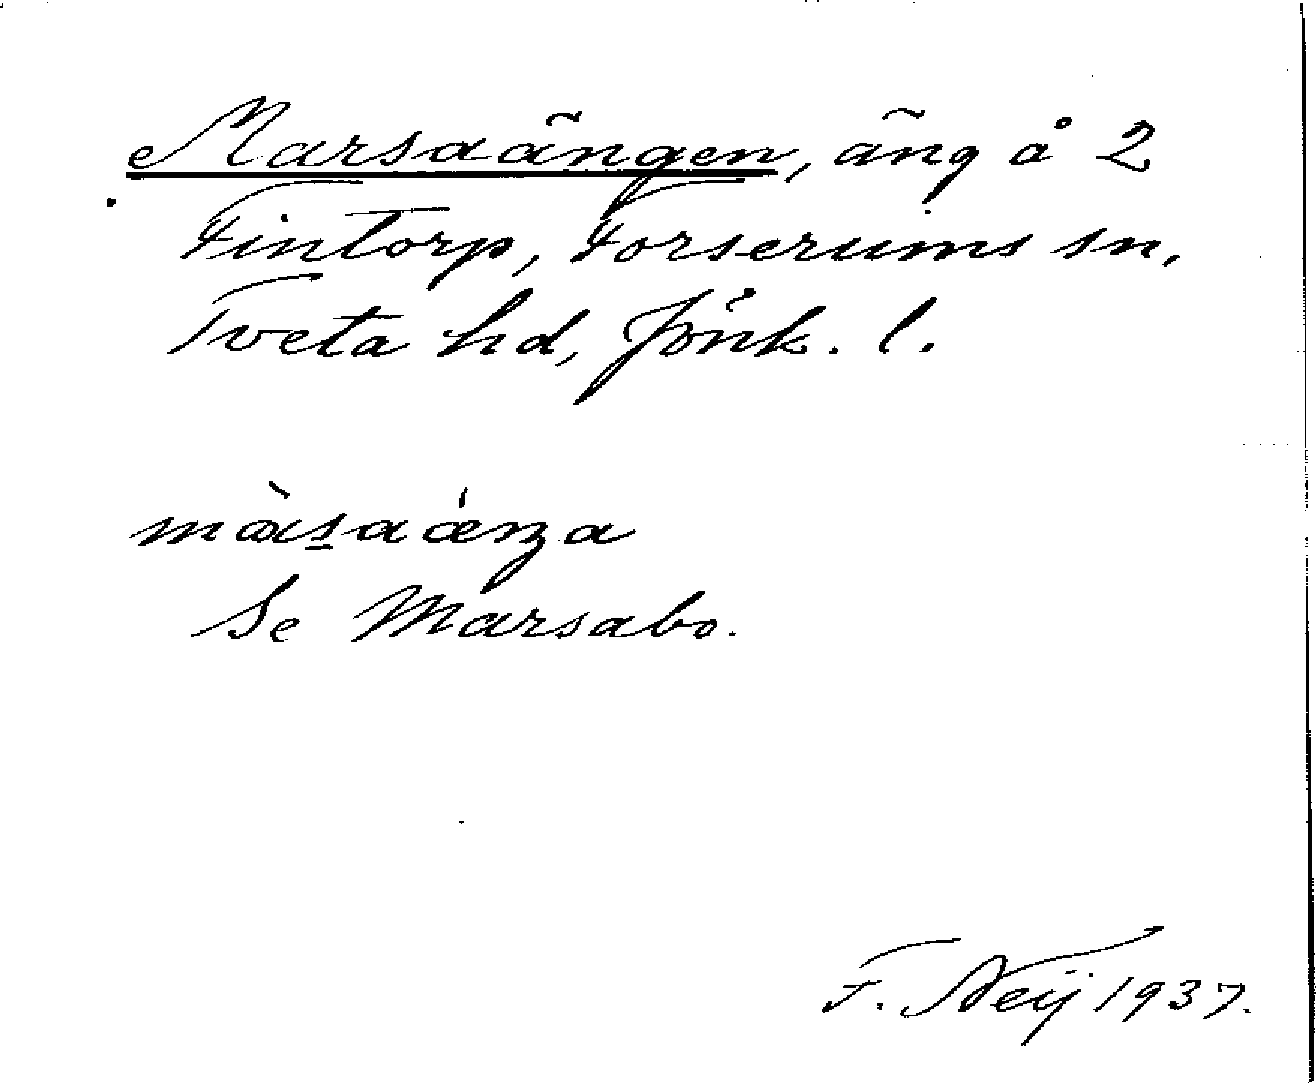 Marsaängen, äng å 2
Fintorp, Forserums sn,
Tveta hd, Jönk. l.
màs̠aǽŋa
Se Marsabo.
F. Neij 1937.